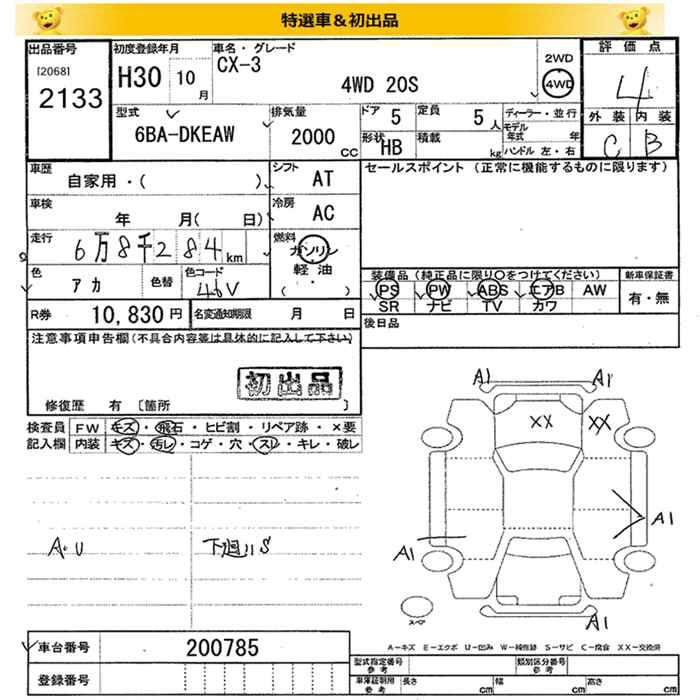 特選車&初出品
出品番号
[2068]
2133
初度登録年月
H30 10月
車名・グレード
CX-3
4WD 20S
2WD
4WD
評価点
4
外装 内装
C B
型式
6BA-DKEAW
排気量
2000 CC
ドア 5
定員 5人
形状 HB
積載 kg
ディーラー・並行
モデル年式 年
ハンドル 左・右
車歴
自家用・( )
シフト AT
セールスポイント (正常に機能するものに限ります)
車検 年 月( 日)
冷房 AC
走行 6万8千284km
燃料 ガソリン
軽油
( ・ )
色 アカ
色替
色コード 46V
装備品(純正品に限り○をつけてください)
PS PW ABS エアB AW
SR ナビ TV カワ
新車保証書
有・無
R券 10,830円
名変通知期限 月 日
後日品
注意事項申告欄(不具合内容等は具体的に記入して下さい)
初出品
修復歴 有 [箇所 ]
検査員記入欄
FW キズ・飛石・ヒビ割・リペア跡・×要
内装 キズ・汚レ・コゲ・穴・スレ・キレ・破レ
A・U
下廻リS
A1 A1
XX XX
A1
A1
A1
スペア
車台番号 200785
登録番号
A-キズ E-エクボ U-凹み W-補修跡 S-サビ C-腐食 XX-交換済
型式指定番号 参考
類別区分番号
車庫証明用 参考
長さ cm 幅 cm 高さ cm